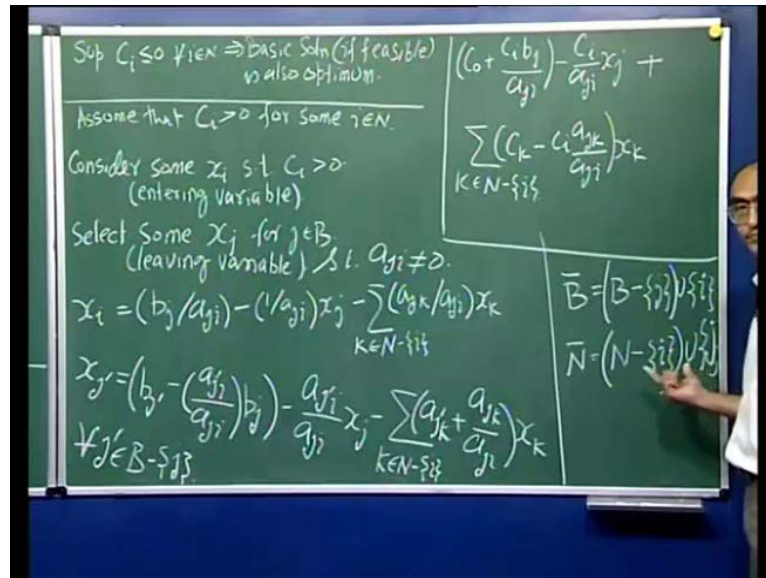 Sup C_i ≤ 0 ∀ i∈N ⇒ basic Soln (if feasible)
is also optimum.
Assume that C_i > 0 for some i∈N.
Consider some x_i s.t C_i > 0.
(entering variable)
Select some x_j for j∈B.
(leaving variable) s.t. a_{ji} ≠ 0.
x_i = (b_j/a_{ji}) - (1/a_{ji})x_j - ∑_{K∈N-{i}} (a_{jK}/a_{ji})x_K
x_{j'} = (b_{j'} - (a_{j'i}/a_{ji})b_j) - (a_{j'i}/a_{ji})x_j - ∑_{K∈N-{i}} (a_{j'K} + a_{jK}/a_{ji})x_K
∀ j'∈B-{j}
(C_0 + C_i b_j/a_{ji}) - (C_i/a_{ji})x_j +
∑_{K∈N-{i}} (C_K - C_i a_{jK}/a_{ji})x_K
B̄ = (B-{j})∪{i}
N̄ = (N-{i})∪{j}